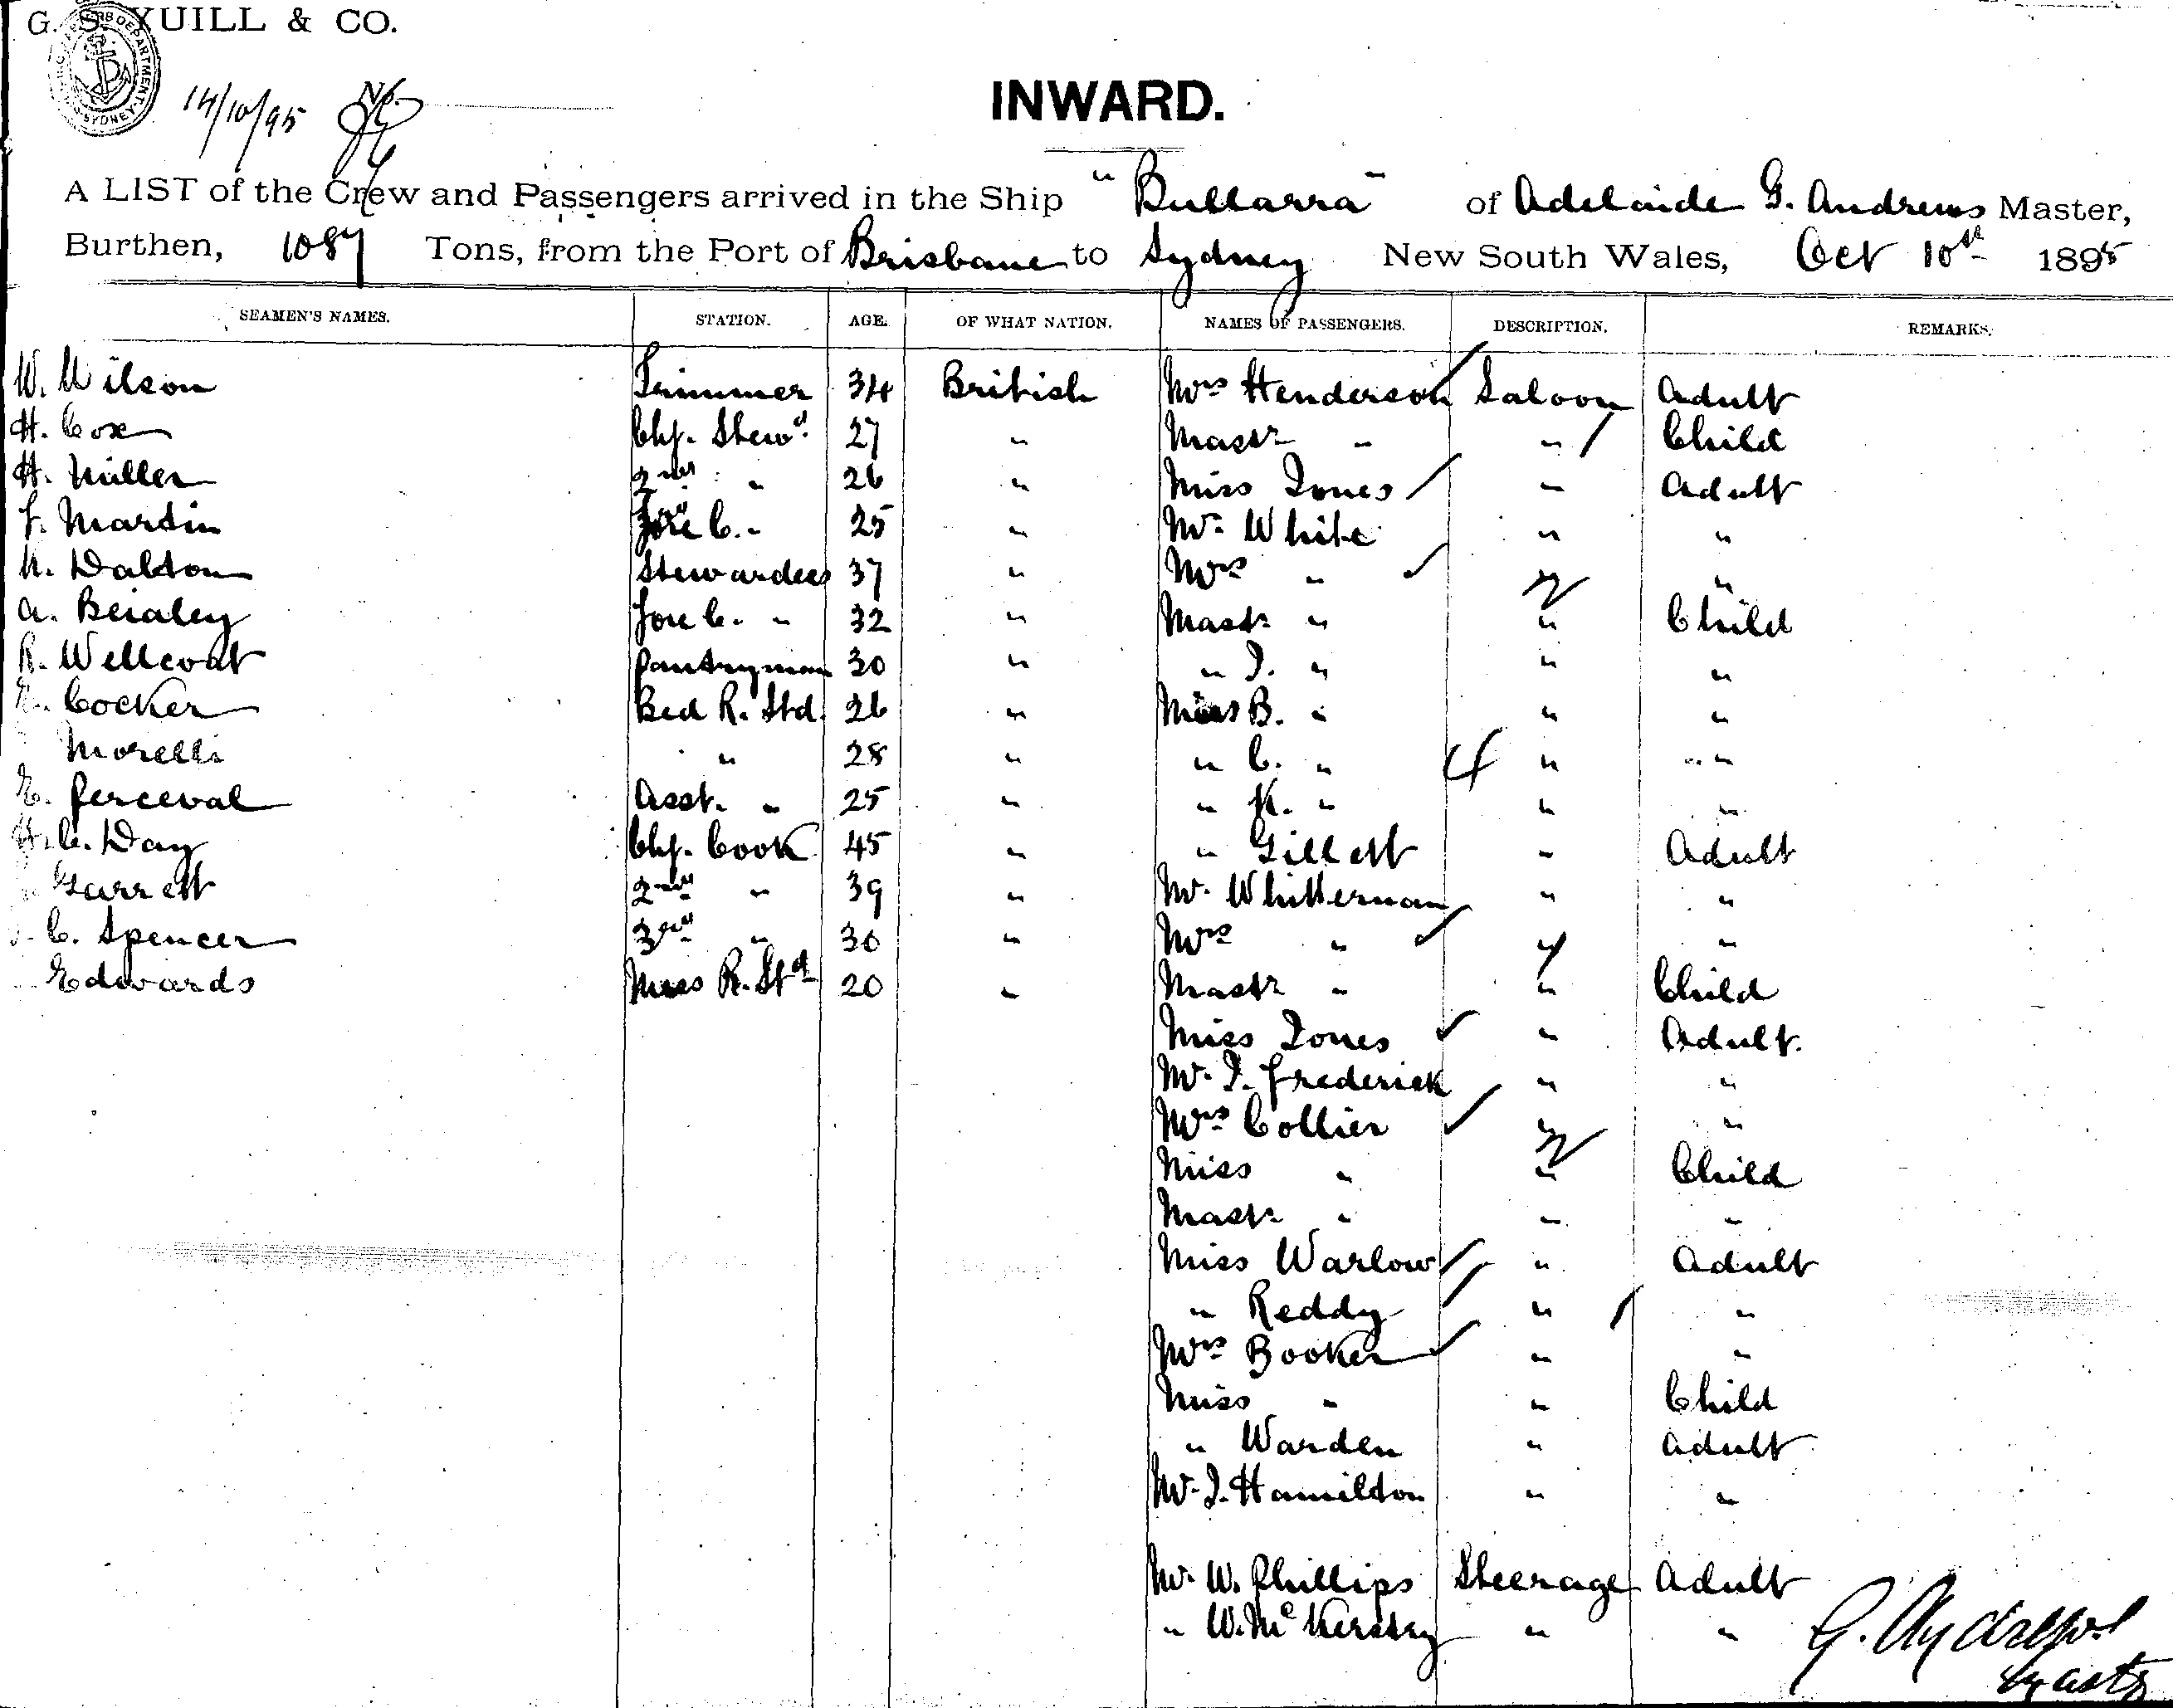 G. S. YUILL & CO.
14/10/95
INWARD.
A LIST of the Crew and Passengers arrived in the Ship "Bullarra" of Adelaide G. Andrews Master,
Burthen, 1087 Tons, from the Port of Brisbane to Sydney New South Wales, Oct 10th 1895
SEAMEN'S NAMES. STATION. AGE. OF WHAT NATION. NAMES OF PASSENGERS. DESCRIPTION. REMARKS.
W. Wilson Trimmer 34 British Mrs Henderson Saloon Adult
H. Cox Chf. Stewd. 27 " Mastr " " Child
H. Miller 2nd " 26 " Miss Jones " Adult
F. Martin Fore C. " 25 " Mr. White " "
Dalton Stewardess 37 " Mrs " " "
A. Beialey Fore C. " 32 " Mastr " " Child
R. Wellcoat Pantryman 30 " " J. " " "
Cocker Bed R. Std. 26 " Miss B. " " "
Morelli " 28 " " C. " 4 " "
E. Perceval Asst. " 25 " " K. " " "
H. C. Day Chf. Cook 45 " " Gillett " Adult
Garrett 2nd " 39 " Mr. Whitternan " "
C. Spencer 3rd " 30 " Mrs " " "
Edwards Mess R. Std 20 " Mastr " " Child
Miss Jones " Adult.
Mr. J. Frederick " "
Mrs Collier " "
Miss " " Child
Mastr " " "
Miss Warlow " Adult
" Reddy " "
Mrs Booker " "
Miss " " Child
" Warden " Adult
Mr. J. Hamilton " "
Mr. W. Phillips Steerage Adult
" W. Mc Kerstry " "
G. Andrews
Master